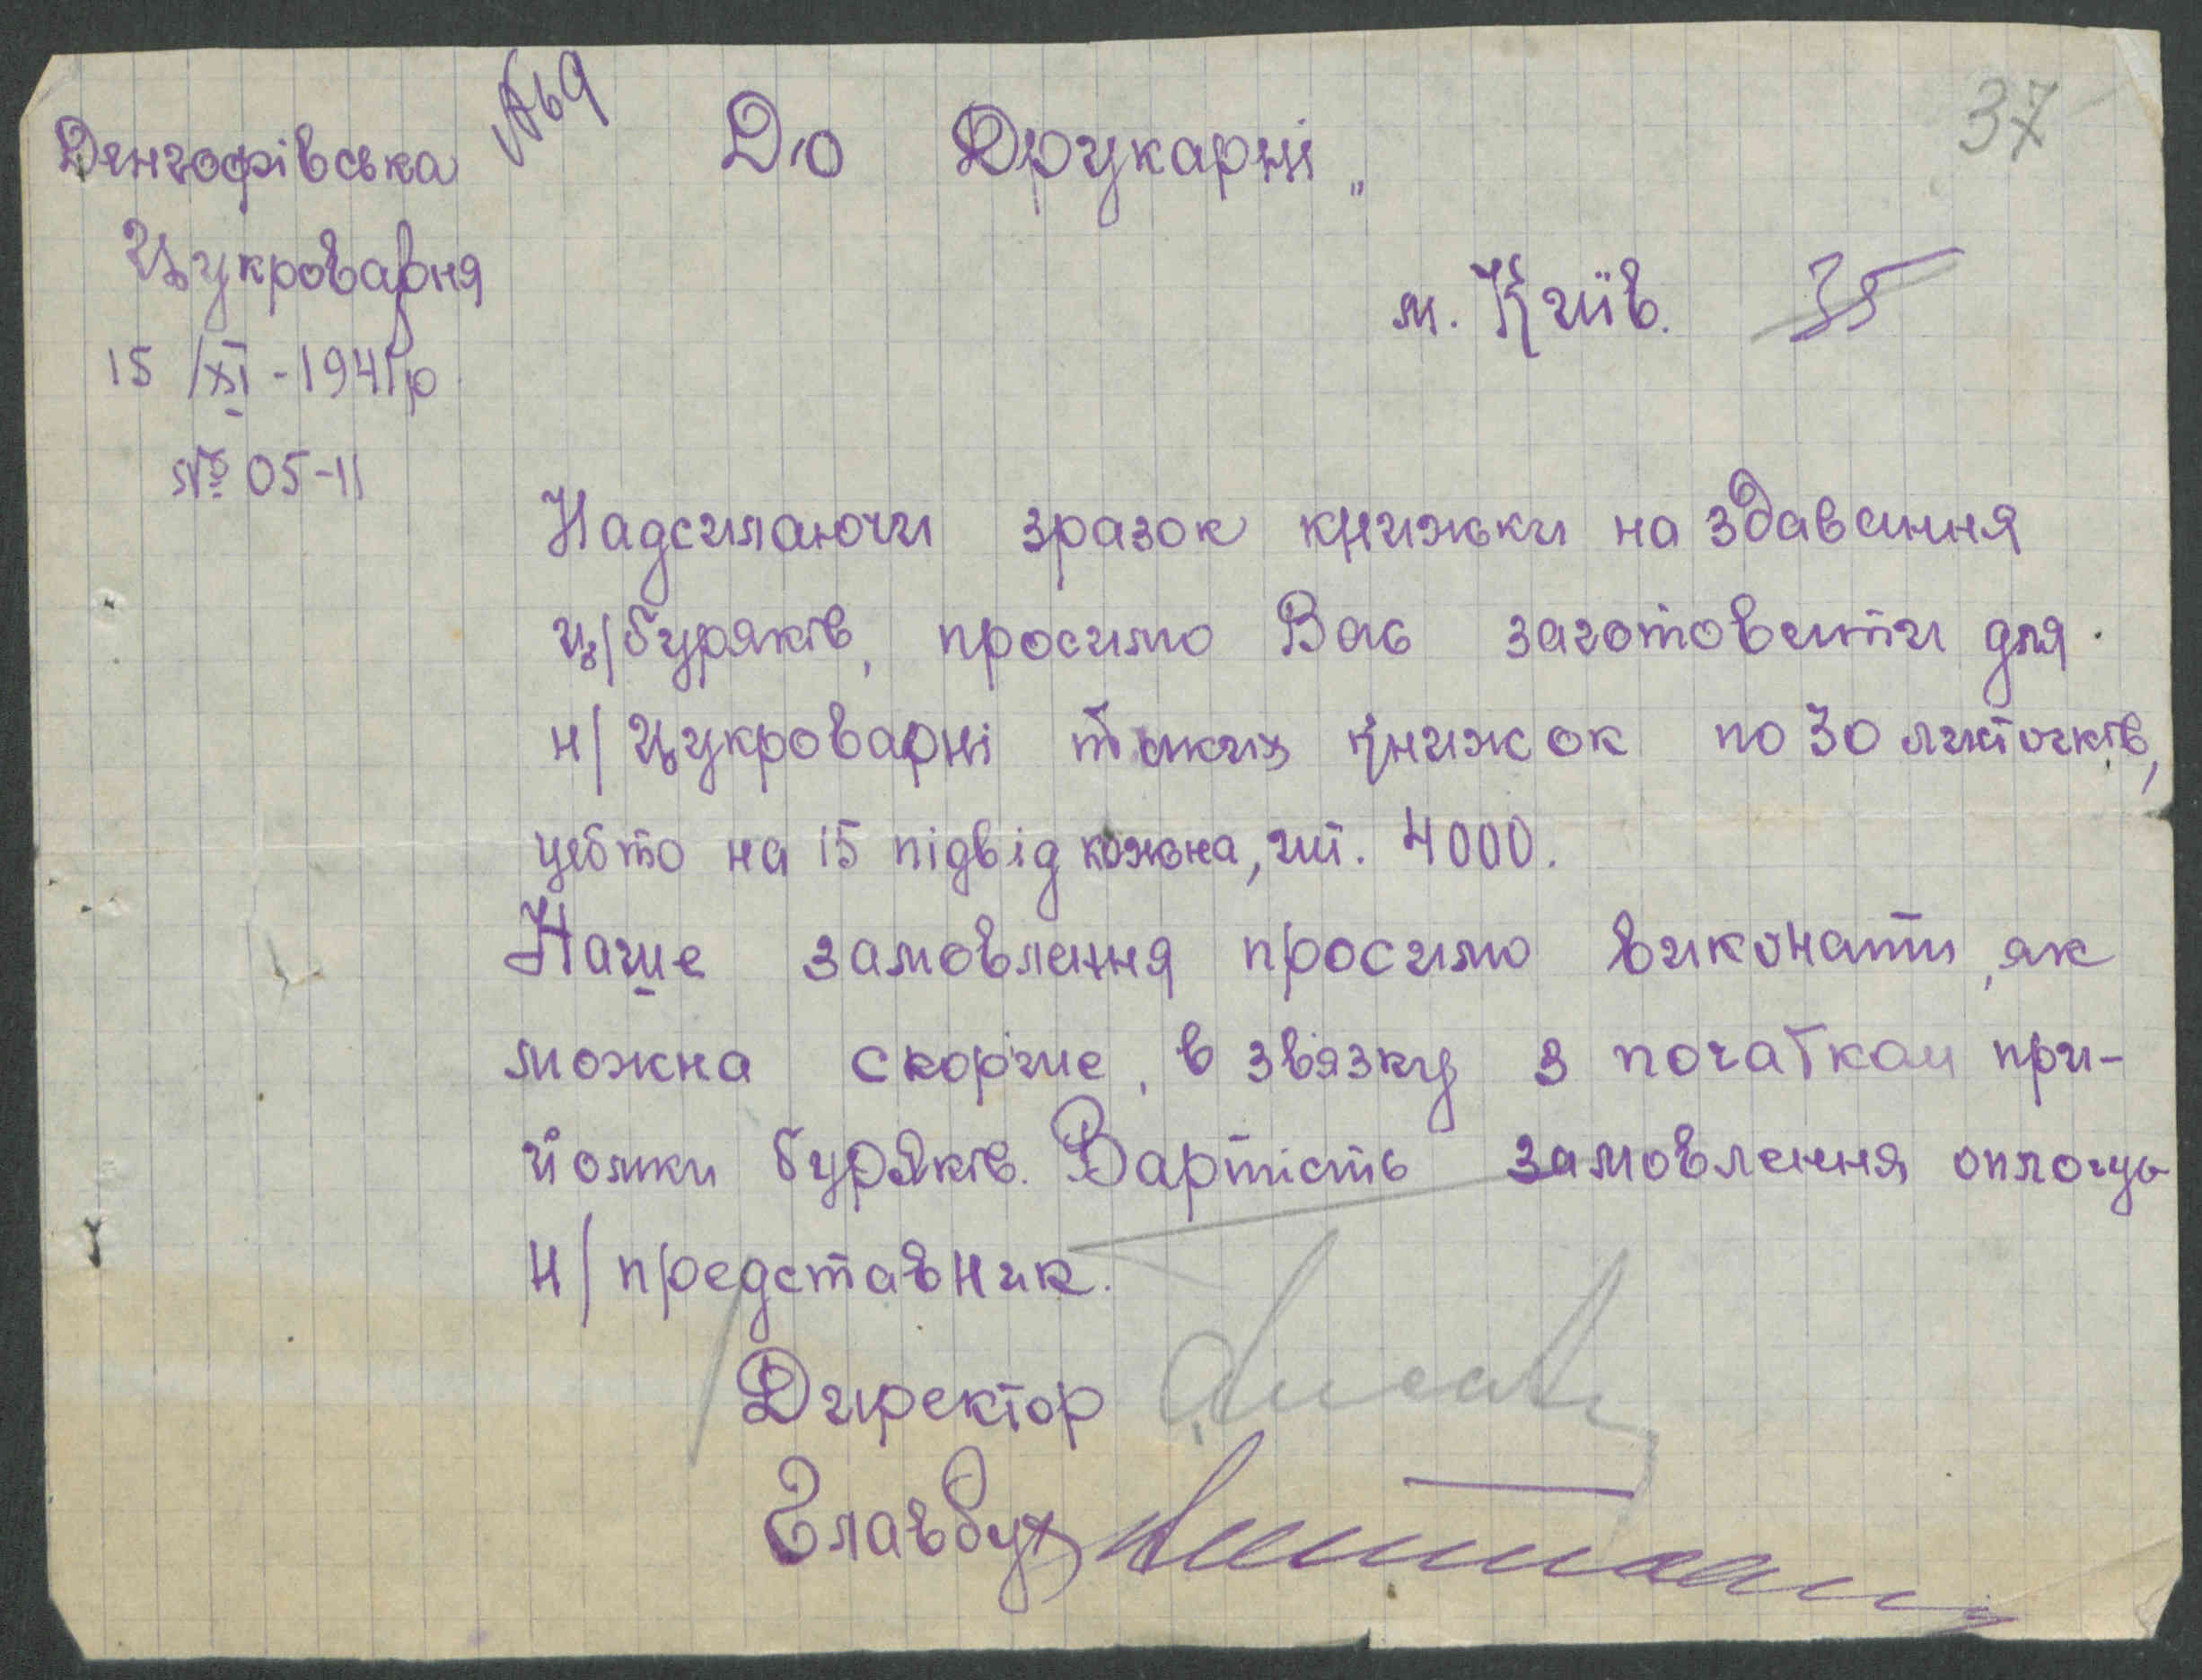 №69
37
Денгофівська
Цукроварня
15/XI-1941р
№ 05-11
До Друкарні „
м. Київ.
35
Надсилаючи зразок книжки на здавання
ц/буряків, просимо Вас заготовити для
н/цукроварні таких книжок по 30 листочків,
цебто на 15 підвід кожна, шт. 4000.
Наше замовлення просимо виконати, як
можна скорше, в звязку з початком при-
йомки буряків. Вартість замовлення оплочує
н/представник.
Директор
Главбух